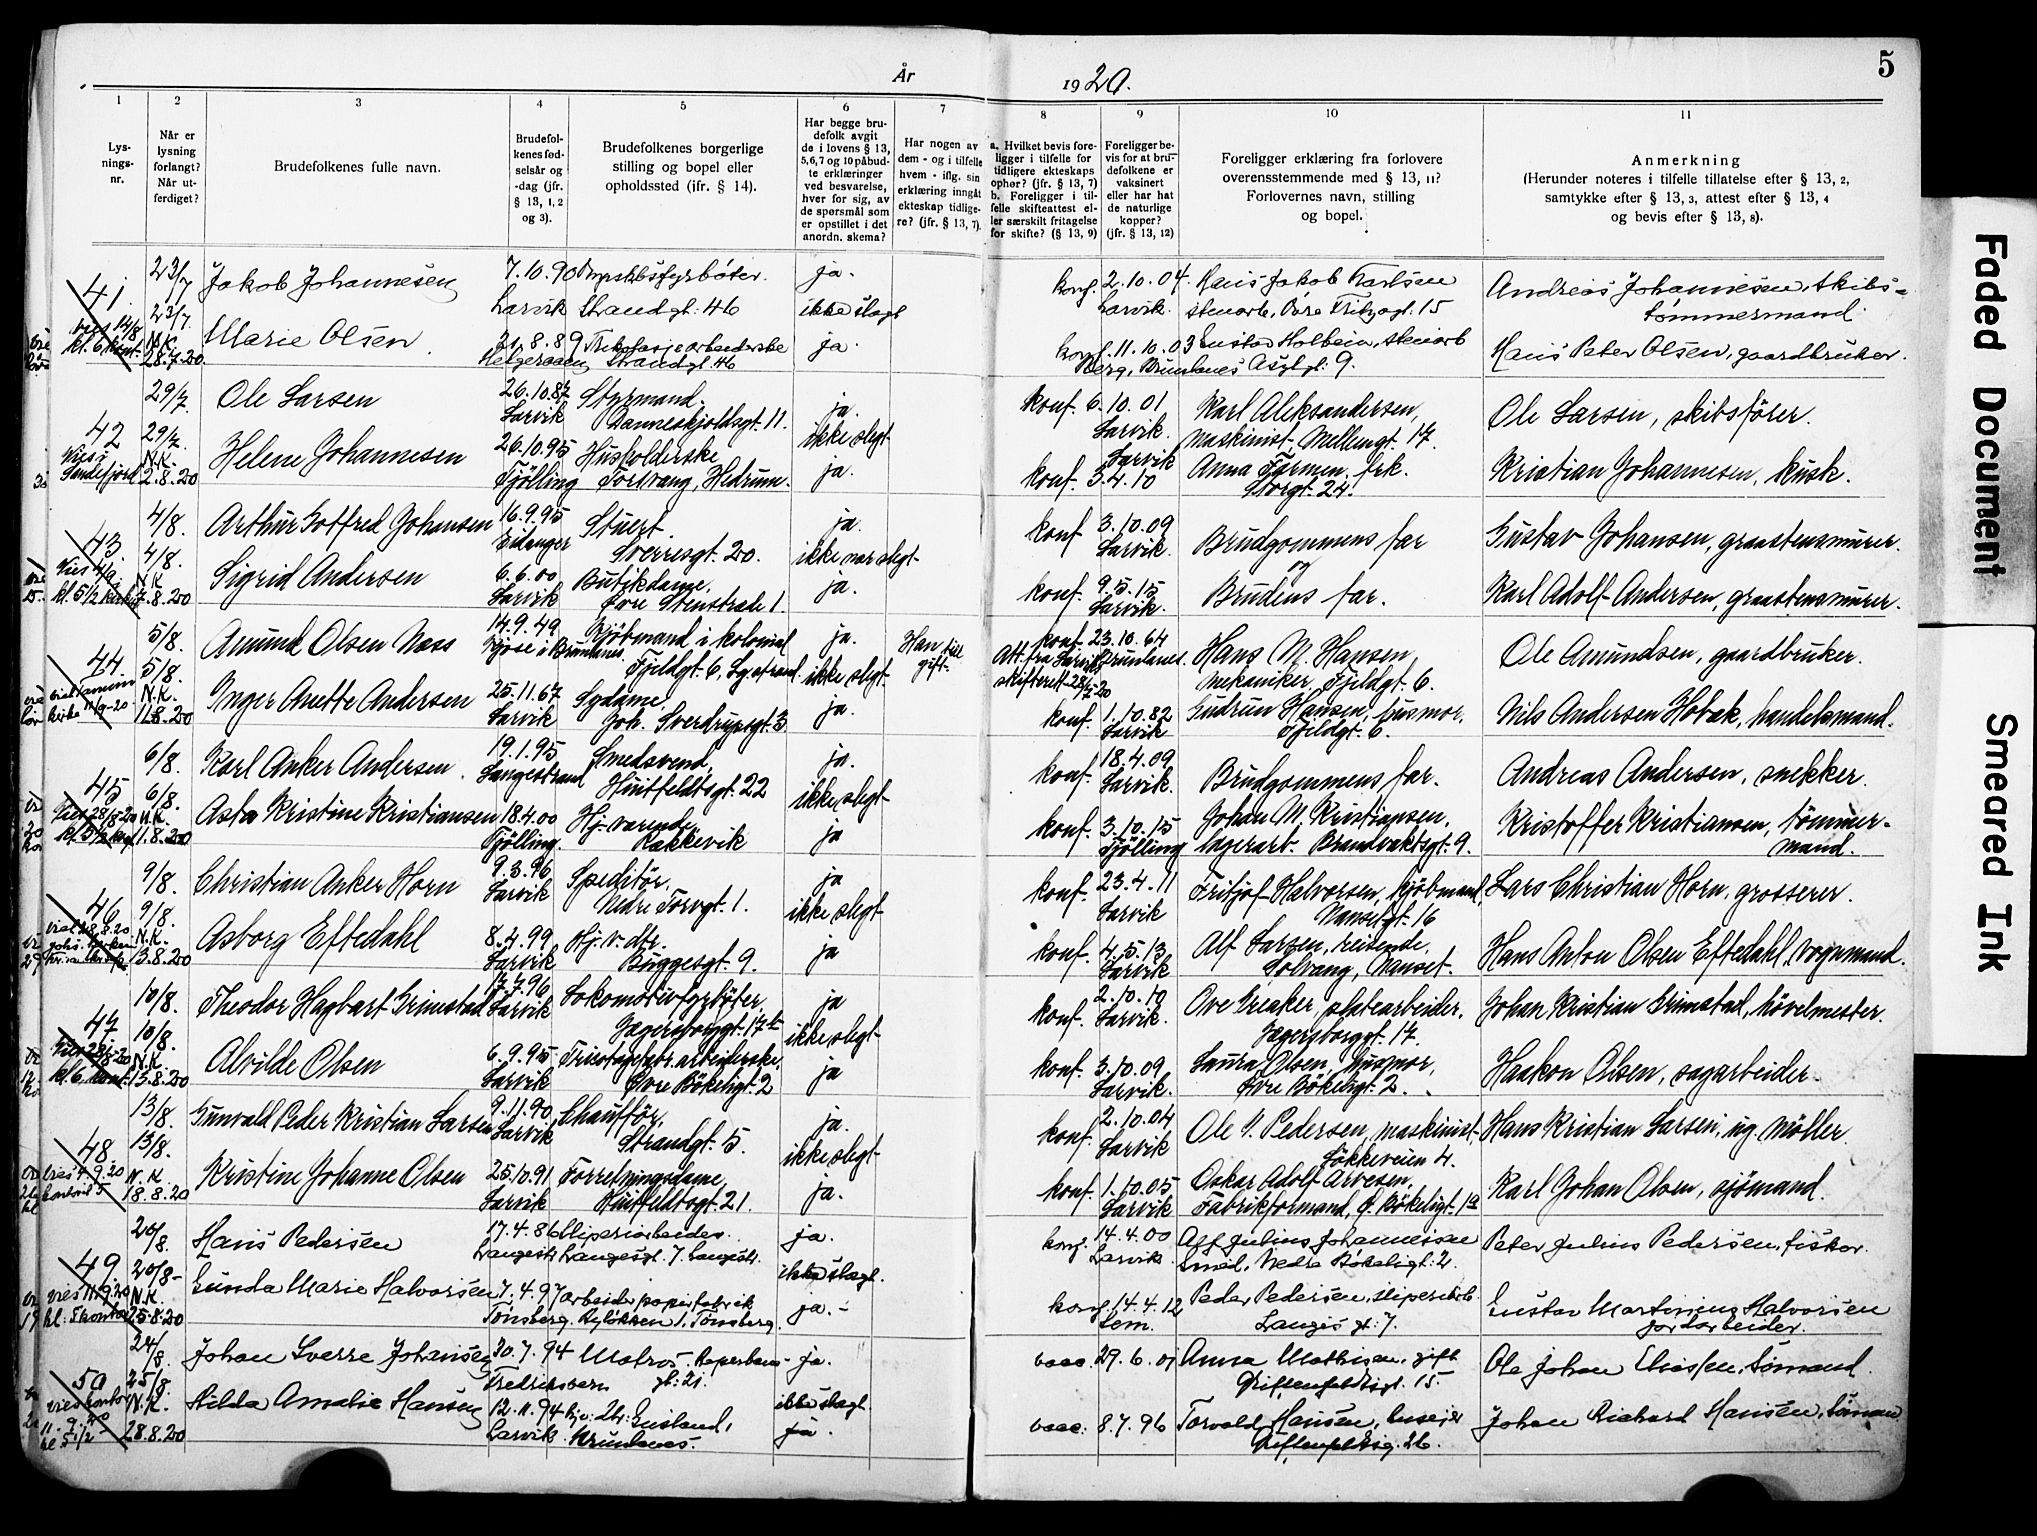 År
1920.
5
1
2
3
4
5
6
7
8
9
10
11
Lys-
nings-
nr.
Når er
lysning
forlangt?
Når ut-
ferdiget?
Brudefolkenes fulle navn.
Brudefol-
kenes fød-
selsår og
-dag (jfr.
§ 13, 1, 2
og 3).
Brudefolkenes borgerlige
stilling og bopel eller
opholdssted (jfr. § 14).
Har begge bru-
defolk avgit
de i lovens § 13,
5,6,7 og 10 påbud-
te erklæringer
ved besvarelse,
hver for sig, av
de spørsmål som
er opstillet i det
anordn. skema?
Har nogen av
dem - og i tilfelle
hvem - iflg. sin
erklæring inngåt
ekteskap tidlige-
re? (jfr. § 13, 7).
a. Hvilket bevis fore-
ligger i tilfelle for
tidligere ekteskaps
ophør? (jfr. § 13, 7)
b. Foreligger i til-
felle skifteattest el-
ler særskilt fritagelse
for skifte? (§ 13, 9)
Foreligger be-
vis for at bru-
defolkene er
vaksinert
eller har hat
de naturlige
kopper?
(jfr. § 13, 12)
Foreligger erklæring fra forlovere
overensstemmende med § 13, 11?
Forlovernes navn, stilling
og bopel.
Anmerkning
(Herunder noteres i tilfelle tillatelse efter § 13, 2,
samtykke efter § 13, 3, attest efter § 13, 4
og bevis efter § 13, 8).
41
23/7
Jakob Johannesen
7.10.90
Larvik
Strandgt. 46
ja.
ikke slegt
konf. 2.10.04
Larvik.
Hans Jakob Karlsen
stenarb, Øvre Fritzøgt. 15
Andreas Johannesen, skibs-
tømmermand
vies 14/8
kl. 6 kont.
23/7
N.K.
28.7.20
Marie Olsen
21.8.89
Helgeraaen
Trikotasjearbeiderske
Strandgt. 46
ja.
konf. 11.10.03
Berg, Brunlanes
Gustav Holbein, stenarb
Asylgt. 9.
Hans Peter Olsen, gaardbruker.
42
29/7
Ole Larsen
26.10.87
Larvik
Styrmand.
Danneskjoldsgt. 11.
ja.
ikke slegt
konf. 6.10.01
Larvik.
Karl Aleksandersen,
maskinist, Mellemgt. 17
Ole Larsen, skibsfører.
Vies i
Sandefjord
29/7.
N.K.
2.8.20
Helene Johannesen
26.10.95
Tjølling
Husholderske
Torsvang, Hedrum.
ja.
konf. 3.4.10
Larvik
Anna Farmen, frk.
Storgt. 24.
Kristian Johannesen, kusk.
43
4/8.
Arthur Gotfred Johansen
16.9.95
Eidanger
Stuert.
Sverresgt. 20.
ja.
ikke nær slegt
konf 3.10.09
Larvik.
Brudgommens far
og
Gustav Johansen, graastensmurer.
4/8.
N.K
7.8.20
Sigrid Andersen
6.6.00
Larvik
Butikdame,
Øvre Stenstræde 1.
ja.
konf. 9.5.15
Larvik.
Brudens far.
Karl Adolf Andersen, graastensmurer.
44
5/8.
Amund Olsen Næss
14.9.49
Kjøse i Brunlanes.
Kjøbmand i kolonial
Fjeldgt. 6, Lg.strand.
ja.
ikke slegt.
Han till
gift.
Att. fra Larvik
skifterett
konf. 23.10.64
Brunlanes.
Hans M. Hansen
mekaniker, Fjeldgt. 6.
Ole Amundsen, gaardbruker.
5/8.
N.K.
11.8.20
Inger Anette Andersen
25.11.67
Larvik
Sydame,
Joh. Sverdrupsgt. 3
ja.
konf. 1.10.82
Larvik
Gudrun Hansen, husmor,
Fjeldgt. 6.
Nils Andersen Hobæk, handelsmand.
45
6/8.
Karl Anker Andersen
19.1.95
Langestrand
Smedsvend,
Huitfeldtsgt. 22
ja.
ikke slegt
konf. 18.4.09
Larvik.
Brudgommens far.
Andreas Andersen, snekker.
Vies 28/8-20
kl. 5½
6/8.
N.K.
11.8.20
Asta Kristine Kristiansen
18.4.00
Tjølling.
Hj. værende
Rakkevik
ja
konf. 3.10.15
Tjølling
Johan M. Kristiansen,
lagerarb. Brandvaktsgt. 9.
Kristoffer Kristiansen, tømmer-
mand.
46
9/8.
Christian Anker Horn
9.3.96
Larvik
Speditør,
Nedre Torvgt. 1.
ja
ikke slegt
konf. 23.4.11
Larvik
Fritjof Halvorsen, kjøbmand,
Nansetgt. 16
Lars Christian Horn, grosserer.
9/8.
N.K.
13.8.20
Asborg Eftedahl
8.4.99
Larvik
Hj. v. dtr.
Buggesgt. 9.
ja
konf. 4.5.13
Larvik
Alf Larsen, reisende,
Solvang, Nanset.
Hans Anton Olsen Eftedahl, vognmand.
47
10/8.
Theodor Hagbart Grimstad
17.7.96
Larvik
Lokomotivfyrbøter,
Jegersborggt. 17 b
ja
ikke slegt
konf. 2.10.10
Larvik.
Ove Greaker, platearbeider,
Jegersborggt. 17.
Johan Kristian Grimstad, høvelmester.
Vies 28/8-20
kl. 6 kont.
10/8.
N.K.
13.8.20
Alvilde Olsen
6.9.95
Larvik
Tricotagefabr. arbeiderske,
Øvre Bøkeligt. 2
ja
konf. 3.10.09
Larvik.
Laura Olsen, husmor,
Øvre Bøkeligt. 2.
Haakon Olsen, sagarbeider.
48
13/8.
Gunvald Peder Kristian Larsen
9.11.90
Larvik
Chauffør,
Strandgt. 5.
ja.
ikke slegt
konf. 2.10.04
Larvik
Ole J. Pedersen, maskinist
Løkkeveien 4.
Hans Kristian Larsen, ug. møller.
vies 4.9.20
kontoret 5
13/8.
N.K.
18.8.20
Kristine Johanne Olsen
25.10.91
Larvik
Forretningsdame,
Huitfeldtsgt. 21.
ja.
konf. 1.10.05
Larvik
Oskar Adolf Arvesen,
Fabrikformand, Ø. Bøkeligt. 1a
Karl Johan Olsen, sjømand.
49
20/8.
Hans Pedersen
17.4.86
Langestr
Sliperiarbeider.
Langesgt. 7. Langestr.
ja.
ikke slegt.
konf. 14.4.00
Larvik
Alf Julius Johannessen
Smed, Nedre Bøkeligt. 2.
Peter Julius Pedersen, fisker.
vies 11.9.20
20/8-
N.K.
25.8.20
Gunda Marie Halvorsen
7.4.97
Tønsberg.
arbeider papirfabrik
Byløkken 1, Tønsberg.
ja.
konf. 14.4.12
Sem.
Peder Pedersen, sliperiarb.
Langes gt. 7.
Gustav Martinius Halvorsen
jordarbeider.
50
24/8.
Johan Sverre Johansen
30.7.94
Fredriksvern
Matros. Reperban-
gt. 21.
ja.
ikke slegt.
vacc. 29.6.01
Anna Mathisen, gift
Griffenfeldtsgt. 15.
Ole Johan Eliassen, sømand.
vies kontor
11.9.20
kl 5½
25/8.
N.K.
28.8.20
Hilda Amalie Hansen
12.11.94
Larvik.
Brunlanes.
ja.
vacc. 8.7.96
Torvald Hansen, huseier
Griffenfeldtsg. 26.
Johan Richard Hansen, sømand
Faded Document
Smeared Ink